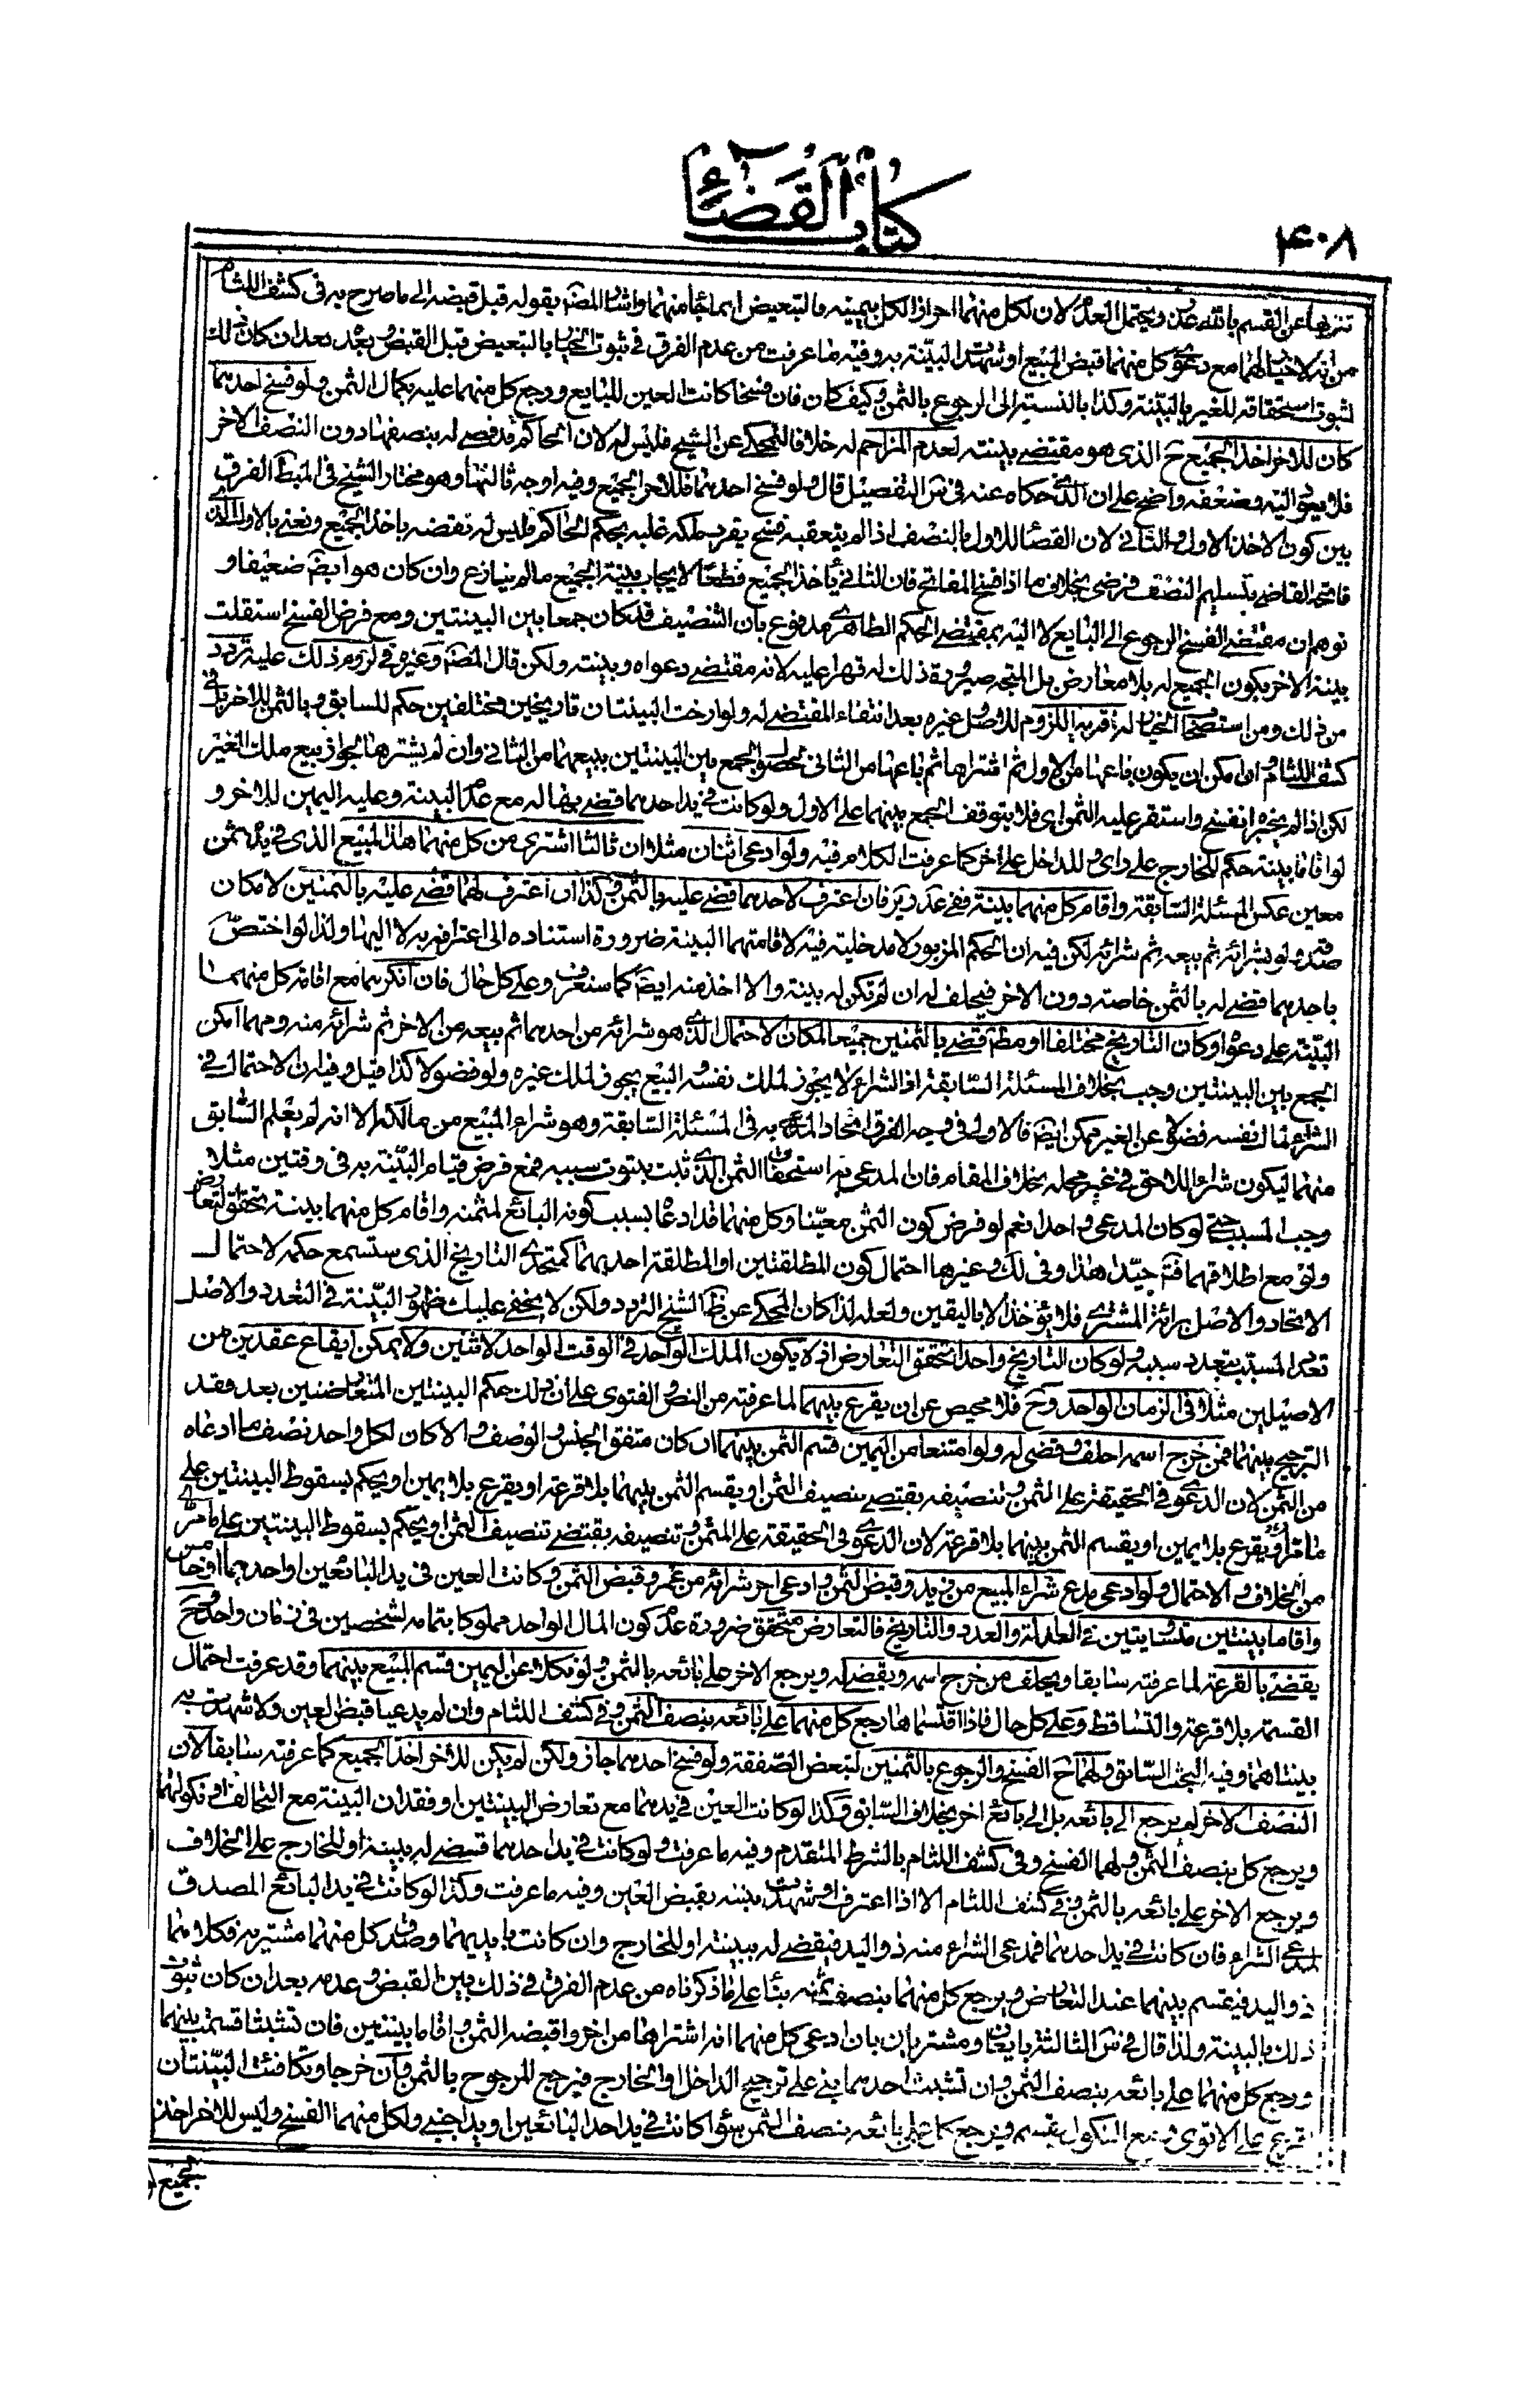 كتاب القضاء
۴۰۸
تنزيها عن القسم بالله عدل ويحتمل العدم لان لكل منهما احراز الكل بيمينه فالتبعيض انما جاء منهما واشار المصنف بقوله قبل قبضه الى ما صرح به في كشف اللثام
من انه لا خيار لهما مع دعوى كل منهما قبض المبيع او شهدت البينة به وفيه ما عرفت من عدم الفرق في ثبوت الخيار بالتبعيض قبل القبض وبعده بعد ان كان ذلك
لثبوت استحقاقه للغير بالبينة وكذا بالنسبة الى الرجوع بالثمن وكيف كان فان فسخا كانت العين للبايع ورجع كل منهما عليه بكمال الثمن ولو فسخ احدهما
كان للاخر اخذ الجميع ح الذي هو مقتضى بينته لعدم المزاحم له خلافا للمحكي عن الشيخ فليس له لان الحاكم قد قضى له بنصفها دون النصف الاخر
فلا يعود اليه وضعفه واضح على ان الذي حكاه عنه في س التفصيل قال ولو فسخ احدهما فللاخر الجميع وفيه اوجه ثالثها وهو مختار الشيخ في المبسط الفرق
بين كون الاخذ الاول والثاني لان القضاء للاول بالنصف اذا لم يتعقبه فسخ يقرر ملكه عليه بحكم الحاكم فليس له نقضه باخذ الجميع ونعني بالاول الذي
فاتحه القاضي بتسليم النصف فرضى بخلاف ما اذا فسخ المفاتح فان الثاني ياخذ الجميع قطعا لايجاب بينته الجميع ما لم ينازع وان كان هو ايضا ضعيفا و
توهم ان مقتضى الفسخ الرجوع الى البايع لا اليه بمقتضى الحكم الظاهري مدفوع بان التنصيف قد كان جمعا بين البينتين ومع فرض الفسخ استقلت
بينة الاخر بكون الجميع له بلا معارض بل المتجه صيرورة ذلك له قهرا عليه لانه مقتضى دعواه وبينته ولكن قال المصنف وغيره في لزوم ذلك عليه تردد
من ذلك ومن استصحاب الخيار له اقربه اللزوم للاصل وغيره بعد انتفاء المقتضى له ولو ارخت البينتان تاريخين مختلفين حكم للسابق وبالثمن للاخر وفي
كشف اللثام وان امكن ان يكون باعها من الاول ثم اشتراها ثم باعها من الثاني لحصول الجمع بين البينتين ببيعهما من الثاني وان لم يشترها لجواز بيع ملك الغير
لكن اذا لم يجزه انفسخ واستقر عليه الثمن اي فلا يتوقف الجمع بينهما على الاول ولو كانت في يد احدهما قضى بها له مع عدم البينة وعليه اليمين للاخر و
لو اقاما بينة حكم للخارج على راي وللداخل على اخر كما عرفت الكلام فيه ولو ادعى اثنان مثلا ان ثالثا اشترى من كل منهما هذا المبيع الذي في يده بثمن
معين عكس المسئلة السابقة واقام كل منهما بينة ففي عد وير فان اعترف لاحدهما قضى عليه بالثمن وكذا ان اعترف لهما قضى عليه بالثمنين لامكان
صدقه ولو بشرائه ثم بيعه ثم شرائه لكن فيه ان الحكم المزبور لا مدخلية فيه لاقامتهما البينة ضرورة استناده الى اعترافه به لا اليها ولذا لو اختص
باحدهما قضى له بالثمن خاصة دون الاخر فيحلف له ان لم تكن له بينة والا اخذ منه ايضا كما ستعرف وعلى كل حال فان انكرهما مع اقامة كل منهما
البينة على دعواه وكان التاريخ مختلفا او مطلقا قضى بالثمنين جميعا لمكان الاحتمال الذي هو شرائه من احدهما ثم بيعه من الاخر ثم شرائه منه ومهما امكن
الجمع بين البينتين وجب بخلاف المسئلة السابقة اذ الشراء لا يجوز لملك نفسه والبيع يجوز لملك غيره ولو فضولا كذا قيل وفيه ان الاحتمال في
الشراء لمال نفسه فضولا عن الغير ممكن ايضا فالاولى في وجه الفرق اتحاد المدعى به في المسئلة السابقة وهو شراء المبيع من مالكه الا انه لم يعلم السابق
منهما ليكون شراء اللاحق في غير محله بخلاف المقام فان المدعى به استحقاق الثمن الذي ثبت بثبوت سببه فمع فرض قيام البينة به في وقتين مثلا
وجب المسبب حتى لو كان المدعى واحدا نعم لو فرض كون الثمن معينا وكل منهما قد ادعاه بسبب كونه البائع لمثمنه واقام كل منهما بينة تحقق التعارض
ولو مع اطلاقهما فتم جيدا هذا وفي لك وغيرها احتمال كون المطلقتين او المطلقة احدهما كمتحدي التاريخ الذي ستسمع حكمه لاحتمال
الاتحاد والاصل برائة المشتري فلا يؤخذ الا باليقين ولعله لذا كان المحكي عن ظ الشيخ التردد ولكن لا يخفى عليك ظهور البينة في التعدد والاصل
تعدد المسبب بتعدد سببه ولو كان التاريخ واحدا تحقق التعارض اذ لا يكون الملك الواحد في الوقت الواحد لاثنين ولا يمكن ايقاع عقدين من
الاصيلين مثلا في الزمان الواحد وح فلا محيص عن ان يقرع بينهما لما عرفته من النص والفتوى على ان ذلك حكم البينتين المتعارضتين بعد فقد
الترجيح بينهما فمن خرج اسمه احلف وقضى له ولو امتنعا من اليمين قسم الثمن بينهما ان كان متفق الجنس والوصف والا كان لكل واحد نصف ما ادعاه
من الثمن لان الدعوى في الحقيقة على المثمن وتنصيفه يقتضي تنصيف الثمن او يقسم الثمن بينهما بلا قرعة او يقرع بلا يمين او يحكم بسقوط البينتين على
ما مر او يقرع بلا يمين او يقسم الثمن بينهما بلا قرعة لان الدعوى في الحقيقة على المثمن وتنصيفه يقتضي تنصيف الثمن او يحكم بسقوط البينتين على ما مر
من الخلاف والاحتمال ولو ادعى مدع شراء المبيع من زيد وقبض الثمن وادعى اخر شرائه من عمرو وقبض الثمن وكانت العين في يد البائعين او احدهما او خامس
واقاما بينتين متساويتين في العدالة والعدد والتاريخ فالتعارض متحقق ضرورة عدم كون المال الواحد مملوكا بتمامه لشخصين في زمان واحد وح
يقضى بالقرعة لما عرفته سابقا ويحلف من خرج اسمه ويقضى له ويرجع الاخر على بائعه بالثمن ولو نكلا عن اليمين قسم المبيع بينهما وقد عرفت احتمال
القسمة بلا قرعة والتساقط وعلى كل حال فاذا اقتسماها رجع كل منهما على بائعه بنصف الثمن وفي كشف اللثام وان لم يدعيا قبض العين ولا شهدت به
بينتاهما وفيه البحث السابق ولهما ح الفسخ والرجوع بالثمنين لتبعض الصفقة ولو فسخ احدهما جاز ولكن لم يكن للاخر اخذ الجميع كما عرفته سابقا لان
النصف الاخر لم يرجع الى بائعه بل الى بائع اخر بخلاف السابق وكذا لو كانت العين في يدهما مع تعارض البينتين او فقدان البينة مع التحالف او نكولهما
ويرجع كل بنصف الثمن ولهما الفسخ وفي كشف اللثام بالشرط المتقدم وفيه ما عرفت ولو كانت في يد احدهما قضى له ببينته او للخارج على الخلاف
ويرجع الاخر على بائعه بالثمن وفي كشف اللثام الا اذا اعترف او شهدت بينته بقبض العين وفيه ما عرفت وكذا لو كانت في يد البائع المصدق
لمدعي الشراء فان كانت في يد احدهما فمدعي الشراء منه ذو اليد فيقضى له ببينته او للخارج وان كانت بايديهما وصدق كل منهما مشتريه فكلاهما
ذو اليد فيقسم بينهما عند التعارض ويرجع كل منهما بنصف ثمنه بناء على ما ذكرناه من عدم الفرق في ذلك بين القبض وعدمه بعد ان كان ثبوت
ذلك بالبينة ولذا قال في س الثالثة بايعان ومشتريان بان ادعى كل منهما انه اشتراها من اخر واقبضه الثمن واقاما بينتين فان تشبثا قسمت بينهما
ورجع كل منهما على بائعه بنصف الثمن وان تشبث احدهما بني على ترجيح الداخل او الخارج فيرجع المرجوح بالثمن وان خرجا وتكافئت البينتان
على الاقوى ومع النكول يقسم ويرجع كل على بائعه بنصف الثمن سواء كانت في يد احد البائعين او يد اجنبي ولكل منهما الفسخ وليس للاخر اخذ
الجميع